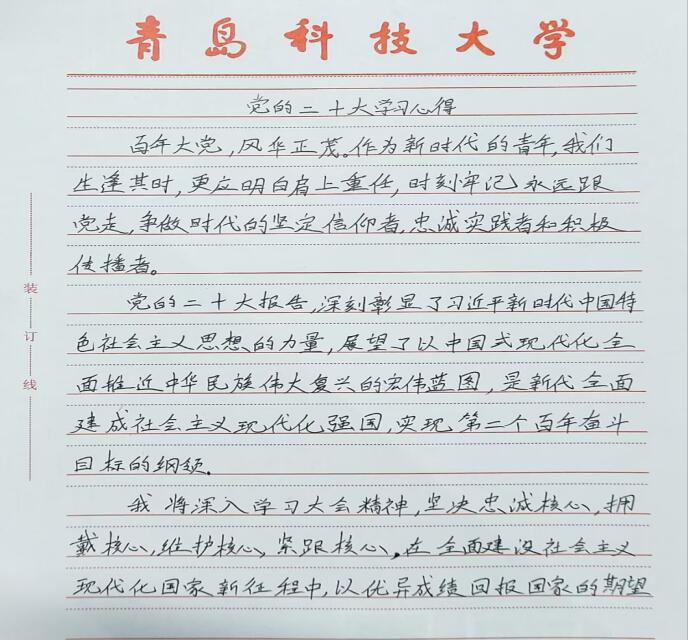 青岛科技大学
党的二十大学习心得
百年大党,风华正茂。作为新时代的青年,我们
生逢其时,更应明白肩上重任,时刻牢记永远跟
党走,争做时代的坚定信仰者,忠诚实践者和积极
传播者。
党的二十大报告,深刻彰显了习近平新时代中国特
色社会主义思想的力量,展望了以中国式现代化全
面推近中华民族伟大复兴的宏伟蓝图,是新代全面
建成社会主义现代化强国,实现第二个百年奋斗
目标的纲领.
我将深入学习大会精神,坚决忠诚核心,拥
戴核心,维护核心,紧跟核心,在全面建设社会主义
现代化国家新征程中,以优异成绩回报国家的期望
装
订
线